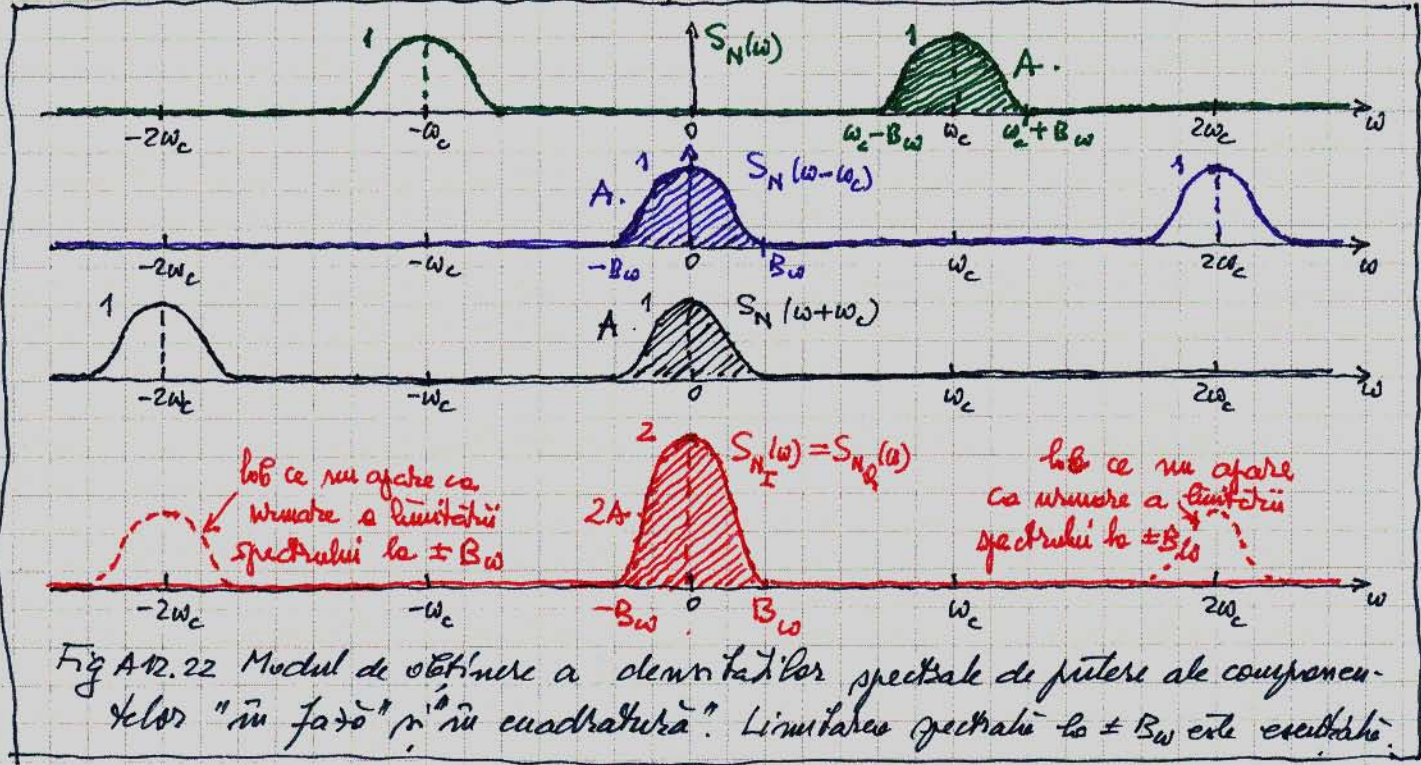 1 S_N(ω) 1 A.
-2ω_c -ω_c 0 ω_c-B_ω ω_c ω_c+B_ω 2ω_c ω
A. 1 S_N(ω-ω_c) 1
-2ω_c -ω_c -B_ω 0 B_ω ω_c 2ω_c ω
1 A 1 S_N(ω+ω_c)
-2ω_c -ω_c 0 ω_c 2ω_c ω
2 S_{N_I}(ω) = S_{N_Q}(ω)
2A
lob ce nu apare ca
urmare a limitării
spectrului la ± B_ω
lob ce nu apare
ca urmare a limitării
spectrului la ± B_ω
-2ω_c -ω_c -B_ω 0 B_ω ω_c 2ω_c ω
Fig A12.22 Modul de obținere a densităților spectrale de putere ale componen-
telor "în fază" și "în cuadratură". Limitarea spectrală la ± B_ω este esențială.